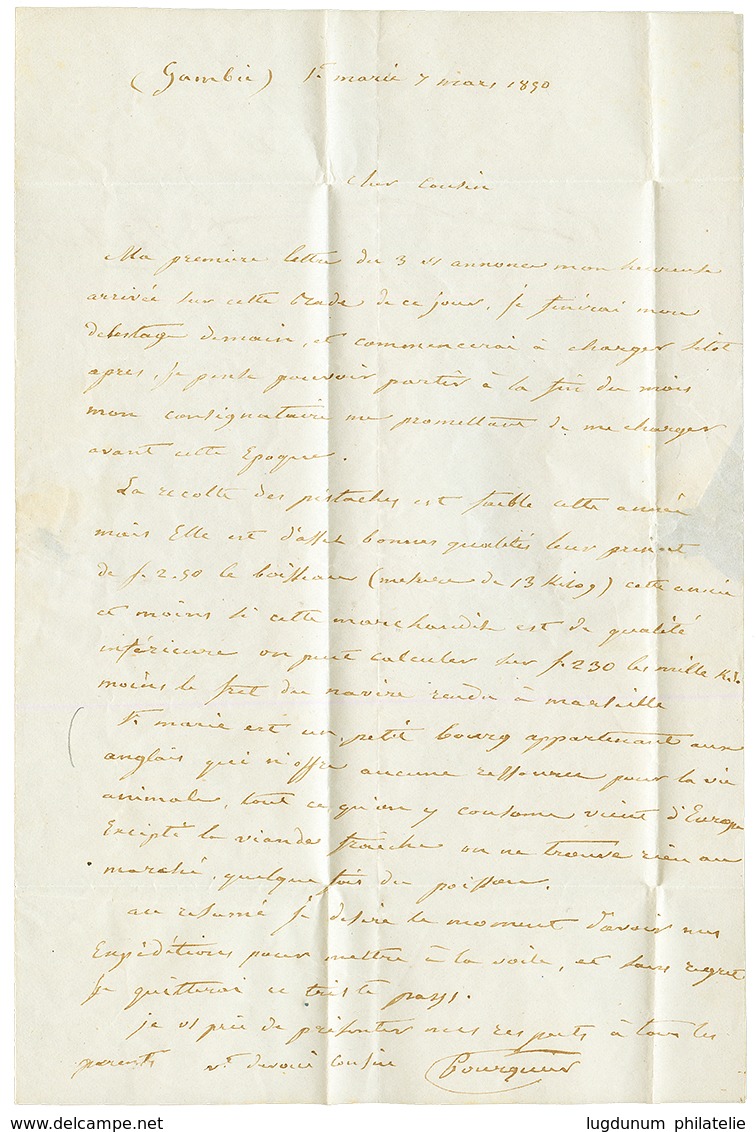 (Gambie) Ste marie 7 mars 1850
cher cousin
Ma premiere lettre du 3 vs annonce mon heureuse
arrivée sur cette Rade de ce jour, je finirai mon
delestage demain, et commencerai à charger sitot
apres, Je pense pouvoir partir à la fin du mois
mon consignataire me promettant de me charger
avant cette Epoque.
La recolte des pistaches est faible cette année
mais Elle est d'assez bonnes qualités leur prix est
de f. 2.50 le boisseau (mesure de 13 Kilog) cette année
et moins si cette marchandise est de qualité
inférieure on peut calculer sur f. 230 les mille K.
moins le fret du navire rendu à marseille
Ste marie est un petit bourg appartenant aux
anglais qui n'offre aucune ressource pour la vie
animale, tout ce qu'on y consome vient d'Europe
Excepté la viande fraiche on ne trouve rien au
marché, quelque fois du poisson.
au resumé je desire le moment d'avoir mes
Expéditions pour mettre à la voile, et sans regret
Je quitterai ce triste pays.
je vs prie de présenter mes respects à tous les
parents vt. devoué cousin
lugdunum philatelie